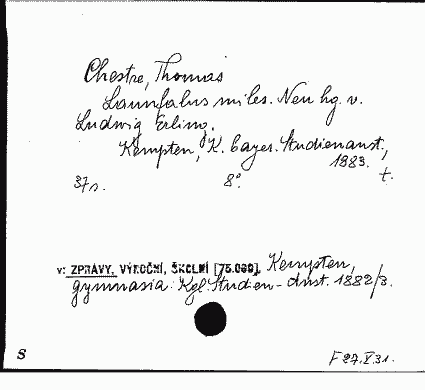 Chestre, Thomas
Launfalus miles. Neu hg. v.
Ludwig Erling.
Kempten, K. bayer. Studienanst.,
1883. t.
37 s. 8°.
v: ZPRÁVY, VÝROČNÍ, ŠKOLNÍ [75.069], Kempten,
gymnasia: Kgl. Studien-Anst. 1882/3.
S F 27.X.31.